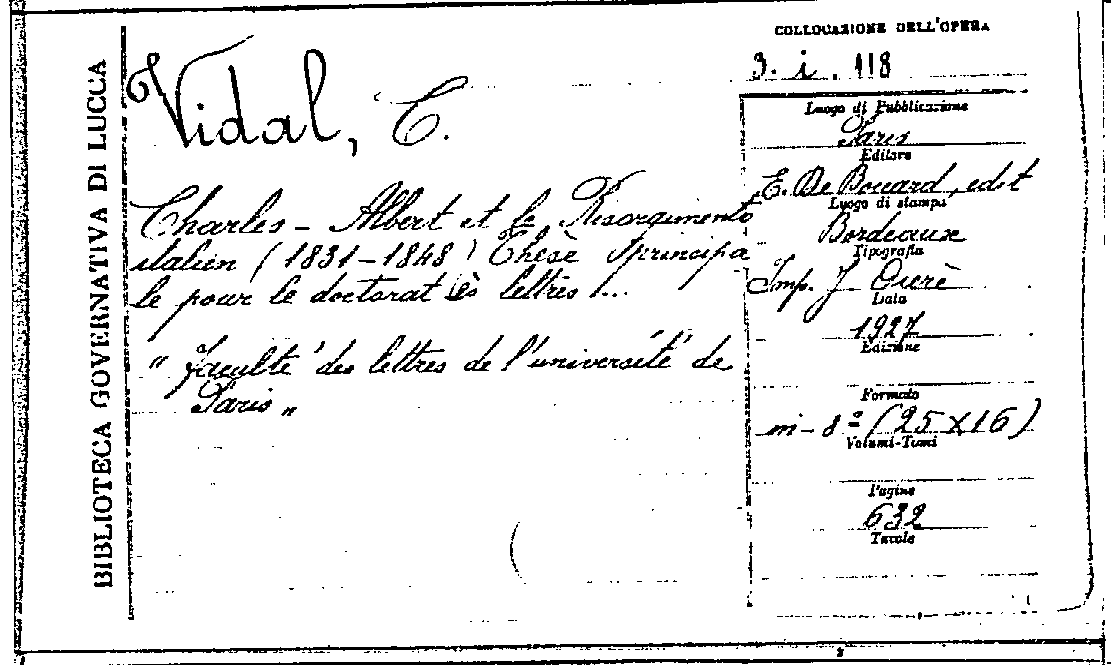 BIBLIOTECA GOVERNATIVA DI LUCCA
Vidal, C.
Charles - Albert et le Risorgimento
italien (1831-1848) Thèse principa
le pour le doctorat ès lettres ...
" Faculté des lettres de l'université de
Paris "
COLLOCAZIONE DELL'OPERA
9. i. 118
Luogo di Pubblicazione
Paris
Editore
E. De Boccard, edit
Luogo di stampa
Bordeaux
Tipografia
Imp. J
Data
1927
Edizione
Formato
in-8º (25x16)
Volumi-Tomi
Pagine
632
Tavole